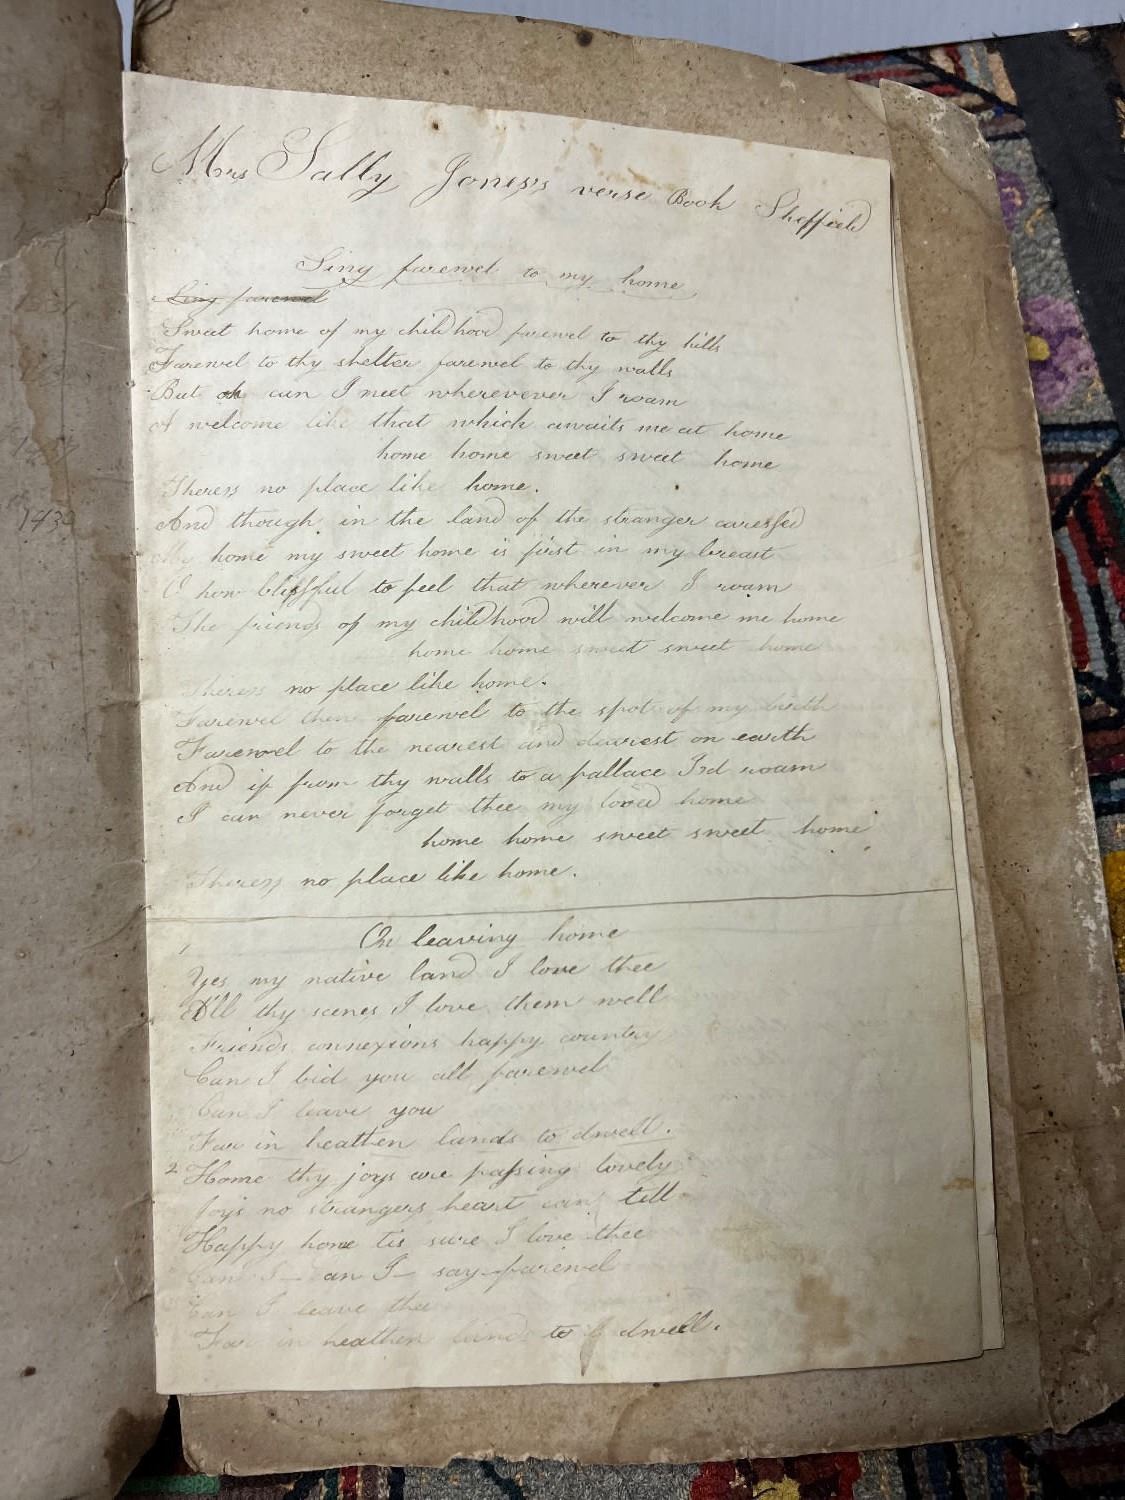 Mrs Sally Jones's verse Book Sheffield
Sing farewel to my home
Sing farewel
Sweet home of my childhood farewel to thy hills
Farewel to thy shelter farewel to thy walls
But oh can I meet wherevever I roam
A welcome like that which awaits me at home
home home sweet sweet home
Theres no place like home.
And though in the land of the stranger caressed
My home my sweet home is first in my breast
O how blissful to feel that wherever I roam
The friends of my childhood will welcome me home
home home sweet sweet home
Theres no place like home.
Farewel then farewel to the spot of my birth
Farewel to the nearest and dearest on earth
And if from thy walls to a pallace I'd roam
I can never forget thee my loved home
home home sweet sweet home
Theres no place like home.
1 On leaving home
Yes my native land I love thee
All thy scenes I love them well
Friends connexions happy country
Can I bid you all farewel
Can I leave you
Far in heathen lands to dwell.
2 Home thy joys are passing lovely
Joys no strangers heart can tell
Happy home tis sure I love thee
Can I - an I - say farewel
Can I leave thee
Far in heathen lands to dwell.